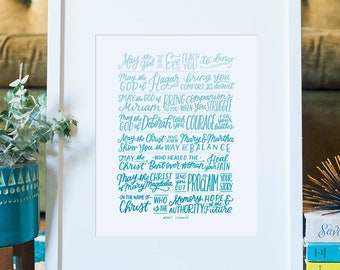 May the God of Eve TEACH YOU to dance
May the God of Hagar bring you COMFORT in the desert
MAY the GOD OF Miriam BRING companions TO YOU WHEN YOU STRUGGLE
May the GOD of Deborah lead you COURAGE for your battles
May the Christ WHO KNEW Mary & Martha
Show You the WAY OF BALANCE
MAY the Christ WHO HEALED THE Bent over Woman Heal your PAIN
May the CHRIST of Mary Magdala SEND YOU OUT to PROCLAIM YOUR STORY
IN the NAME OF CHRIST WHO IS the Memory, HOPE & AUTHORITY of the Future
Save